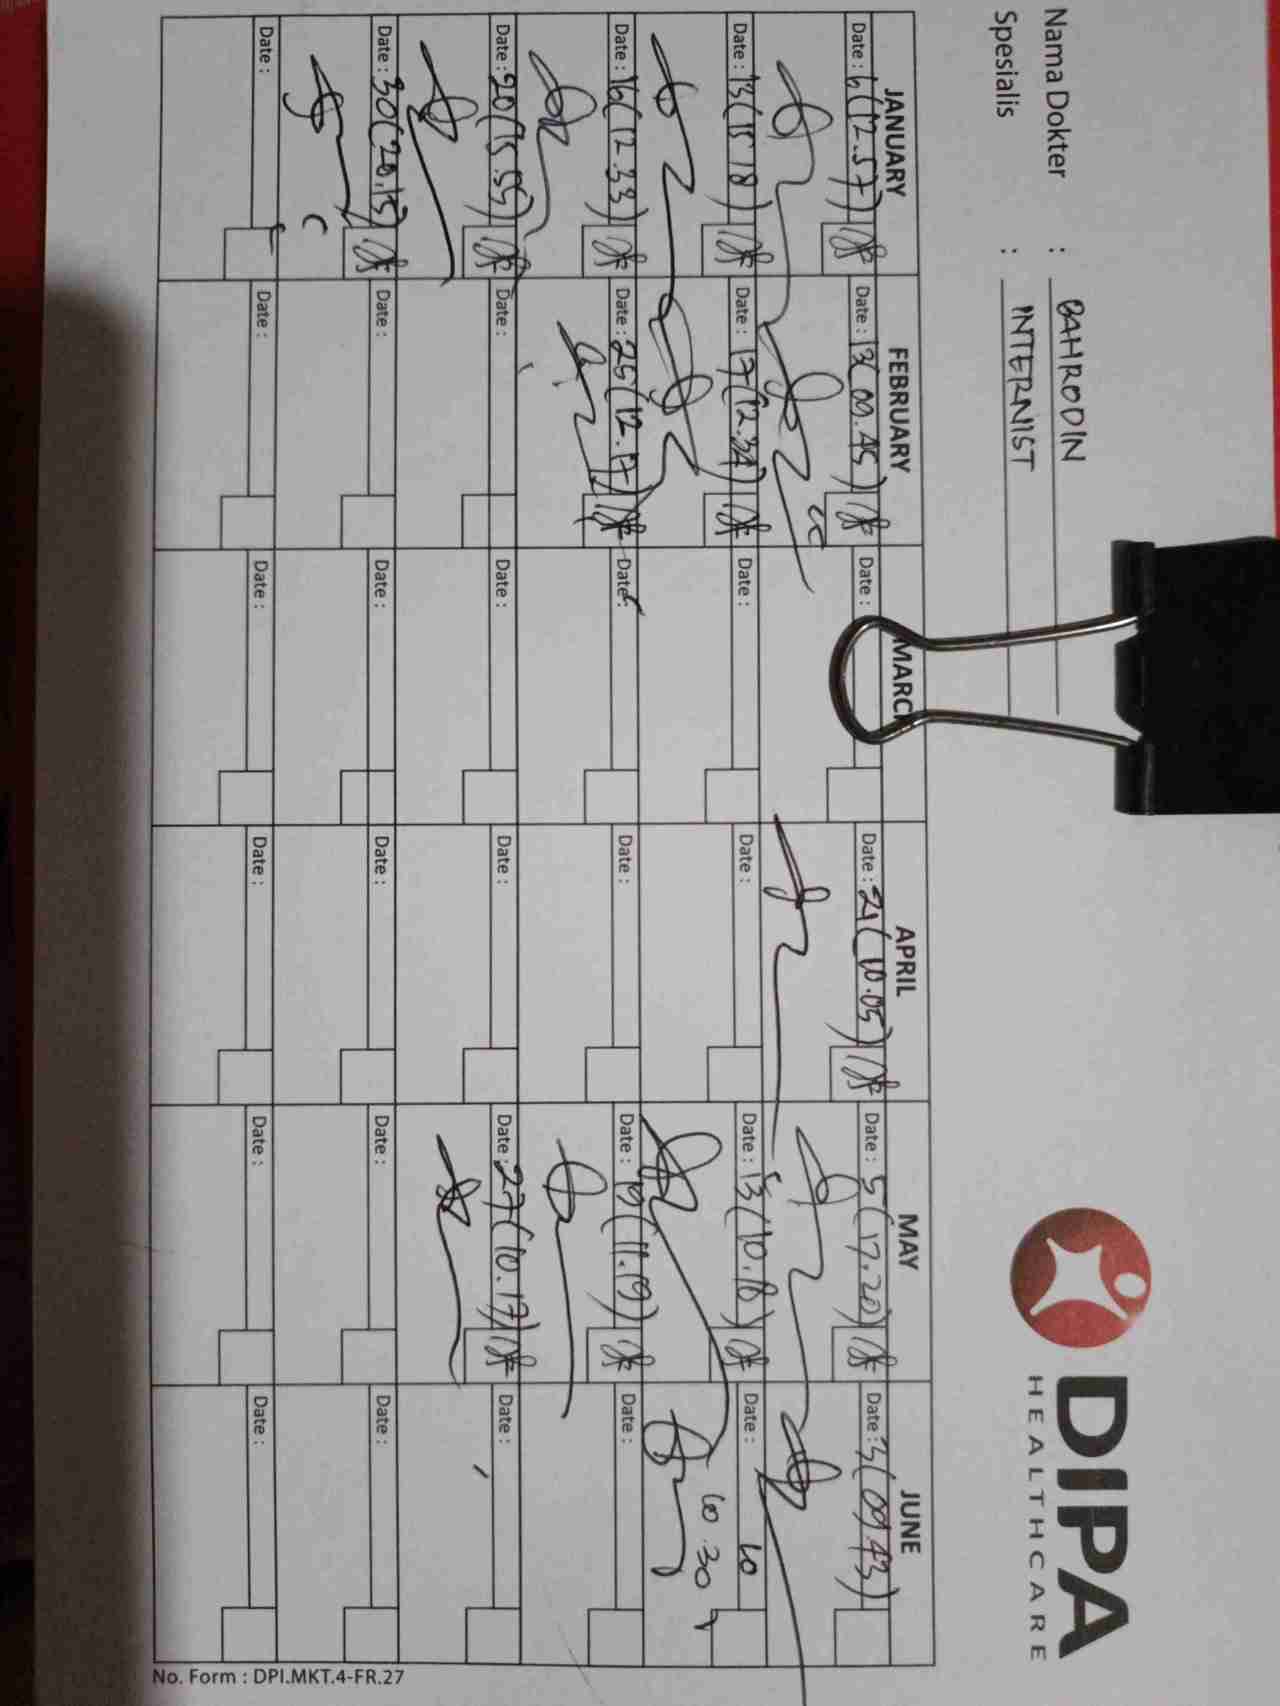 Nama Dokter : BAHRODIN
Spesialis : INTERNIST
DIPA
HEALTHCARE
JANUARY FEBRUARY MARCH APRIL MAY JUNE
Date : 6 (12.57) Date : 13 (09.45) Date : Date : 21 (10.05) Date : 5 (17.20) Date : 3 (09.43)
Date : 13 (15 18) Date : 17 (12.34) Date : Date : Date : 13 (10.18) Date : 10
10.30
Date : 16 (12.33) Date : 25 (12.17) Date : Date : Date : 19 (11.19) Date :
Date : 20 (15.55) Date : Date : Date : Date : 27 (10.17) Date :
Date : 30 (20.15) Date : Date : Date : Date : Date :
Date : Date : Date : Date : Date : Date :
No. Form : DPI.MKT.4-FR.27